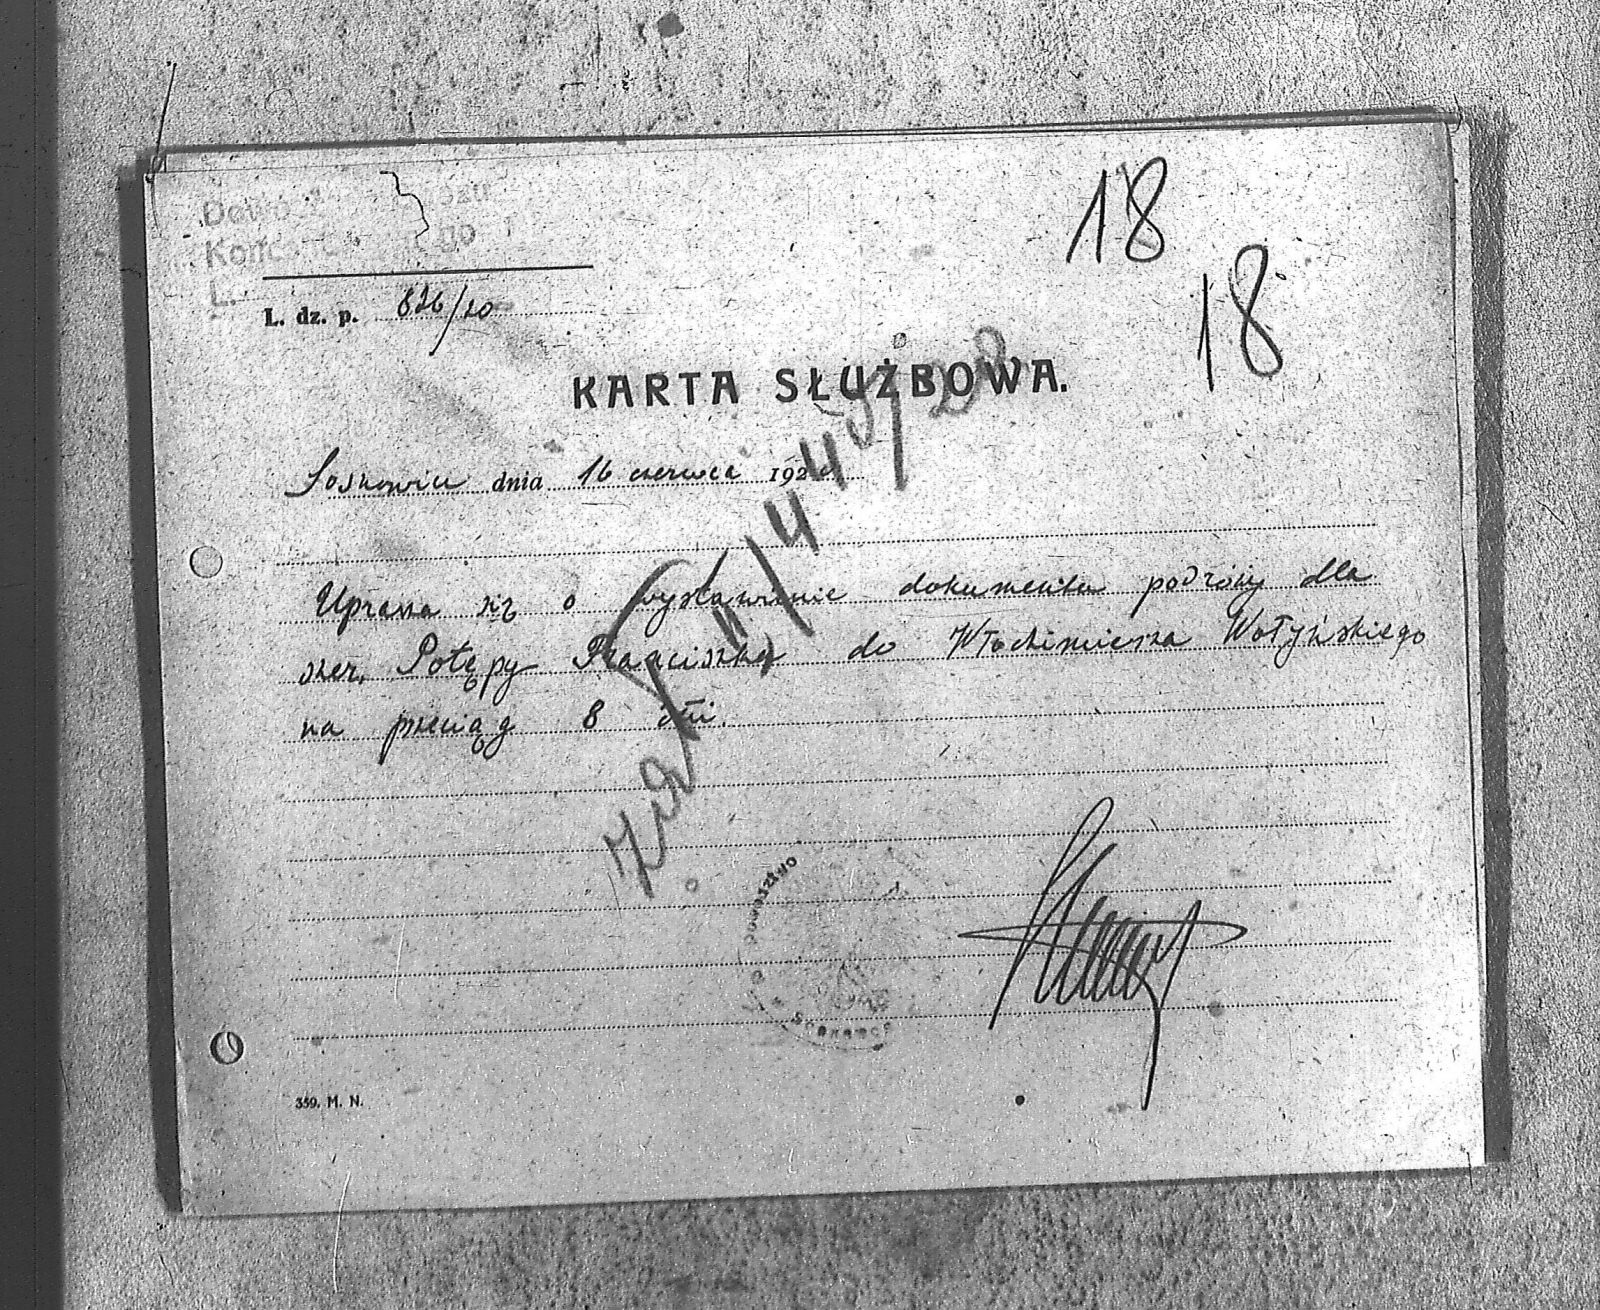 18
18
L. dz. p. 836/20
KARTA SŁUŻBOWA.
Sosnowiec dnia 16 czerwca 1920
Uprasza się o wystawienie dokumentu podróży dla
szer. Potępy Franciszka do Włodzimierza Wołyńskiego
na przeciąg 8 dni.
Dowództwo
359. M. N.